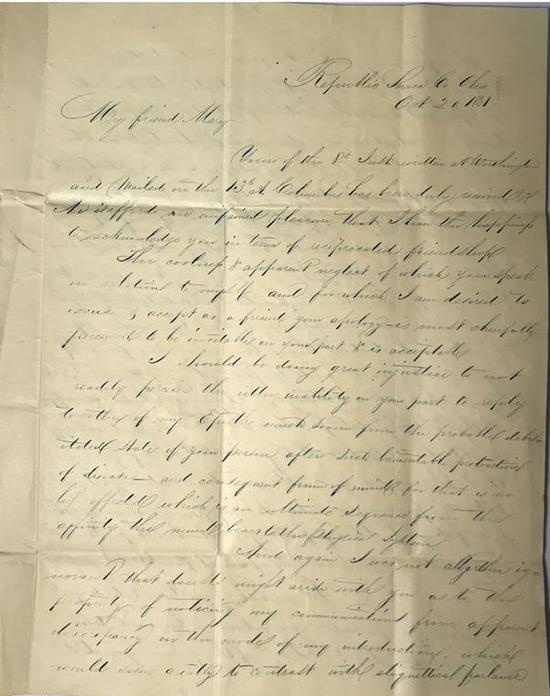 Republic Seneca Co. Ohio
Oct 20 1881
My friend Mary
Yours of the 8th Inst written at Worthington
and Mailed on the 13th at Columbus has been duly received &
it affords me unfeigned pleasure that I have the happiness
to acknowledge you in terms of reciprocated friendship
The coolness & apparent neglect of which you speak
in relation to myself and for which I am desired to
excuse & accept as a friend your apology is most cheerfully
presumed to be inevitable on your part & is acceptable
I should be doing great injustice to not
readily perceive the utter inability on your part to reply
to either of my Epistles much sooner from the probable debili
itated state of your person after such lamentable protraction
of disease and consequent frame of mind for that is no
less affected which is an ultimate sequence from the
affinity the mind bears to the Physical System
And again I was not altogether ig=
norant that doubts might arise with you as to the
propriety of noticing my communications from apparent
discrepancy in the mode of my introduction, which
would seem greatly to contrast with etiquettical parlance